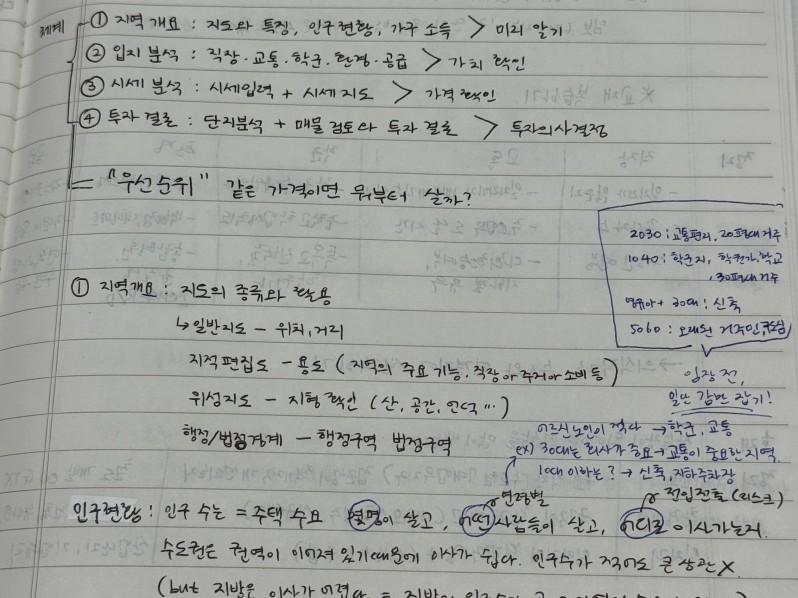 체계
① 지역 개요 : 지도와 특징, 인구현황, 가구 소득 > 미리 알기
② 입지 분석 : 직장·교통·학군·환경·공급 > 가치 확인
③ 시세 분석 : 시세입력 + 시세지도 > 가격확인
④ 투자 결론 : 단지분석 + 매물 검토와 투자 결론 > 투자의사결정
= "우선순위" 같은 가격이면 뭐부터 살까?
2030 : 교통편리, 20평대 거주
1040 : 학군지, 학원가, 학교, 30평대 거주
영유아 + 30대 : 신축
5060 : 오래된 거주민
임장 전,
일단 감만 잡기!
① 지역개요 : 지도의 종류와 활용
↳ 일반지도 - 위치, 거리
지적편집도 - 용도 (지역의 주요 기능. 직장이냐 주거냐 소비 등)
위성지도 - 지형 확인 (산, 공간, 연식 …)
행정/법정경계 - 행정구역 법정구역
어르신 노인이 적다 → 학군, 교통
ex) 30대는 회사가 중요 → 교통이 중요한 지역
10대 이하는? → 신축, 지하주차장
연령별
전입전출 (리스크)
인구현황 : 인구 수는 = 주택 수요 몇명이 살고, 어떤 사람들이 살고, 어디로 이사가는지.
수도권은 권역이 이어져 있기 때문에 이사가 쉽다. 인구수가 적어도 큰 상관 X.
(but 지방은 이사가 어렵다 =